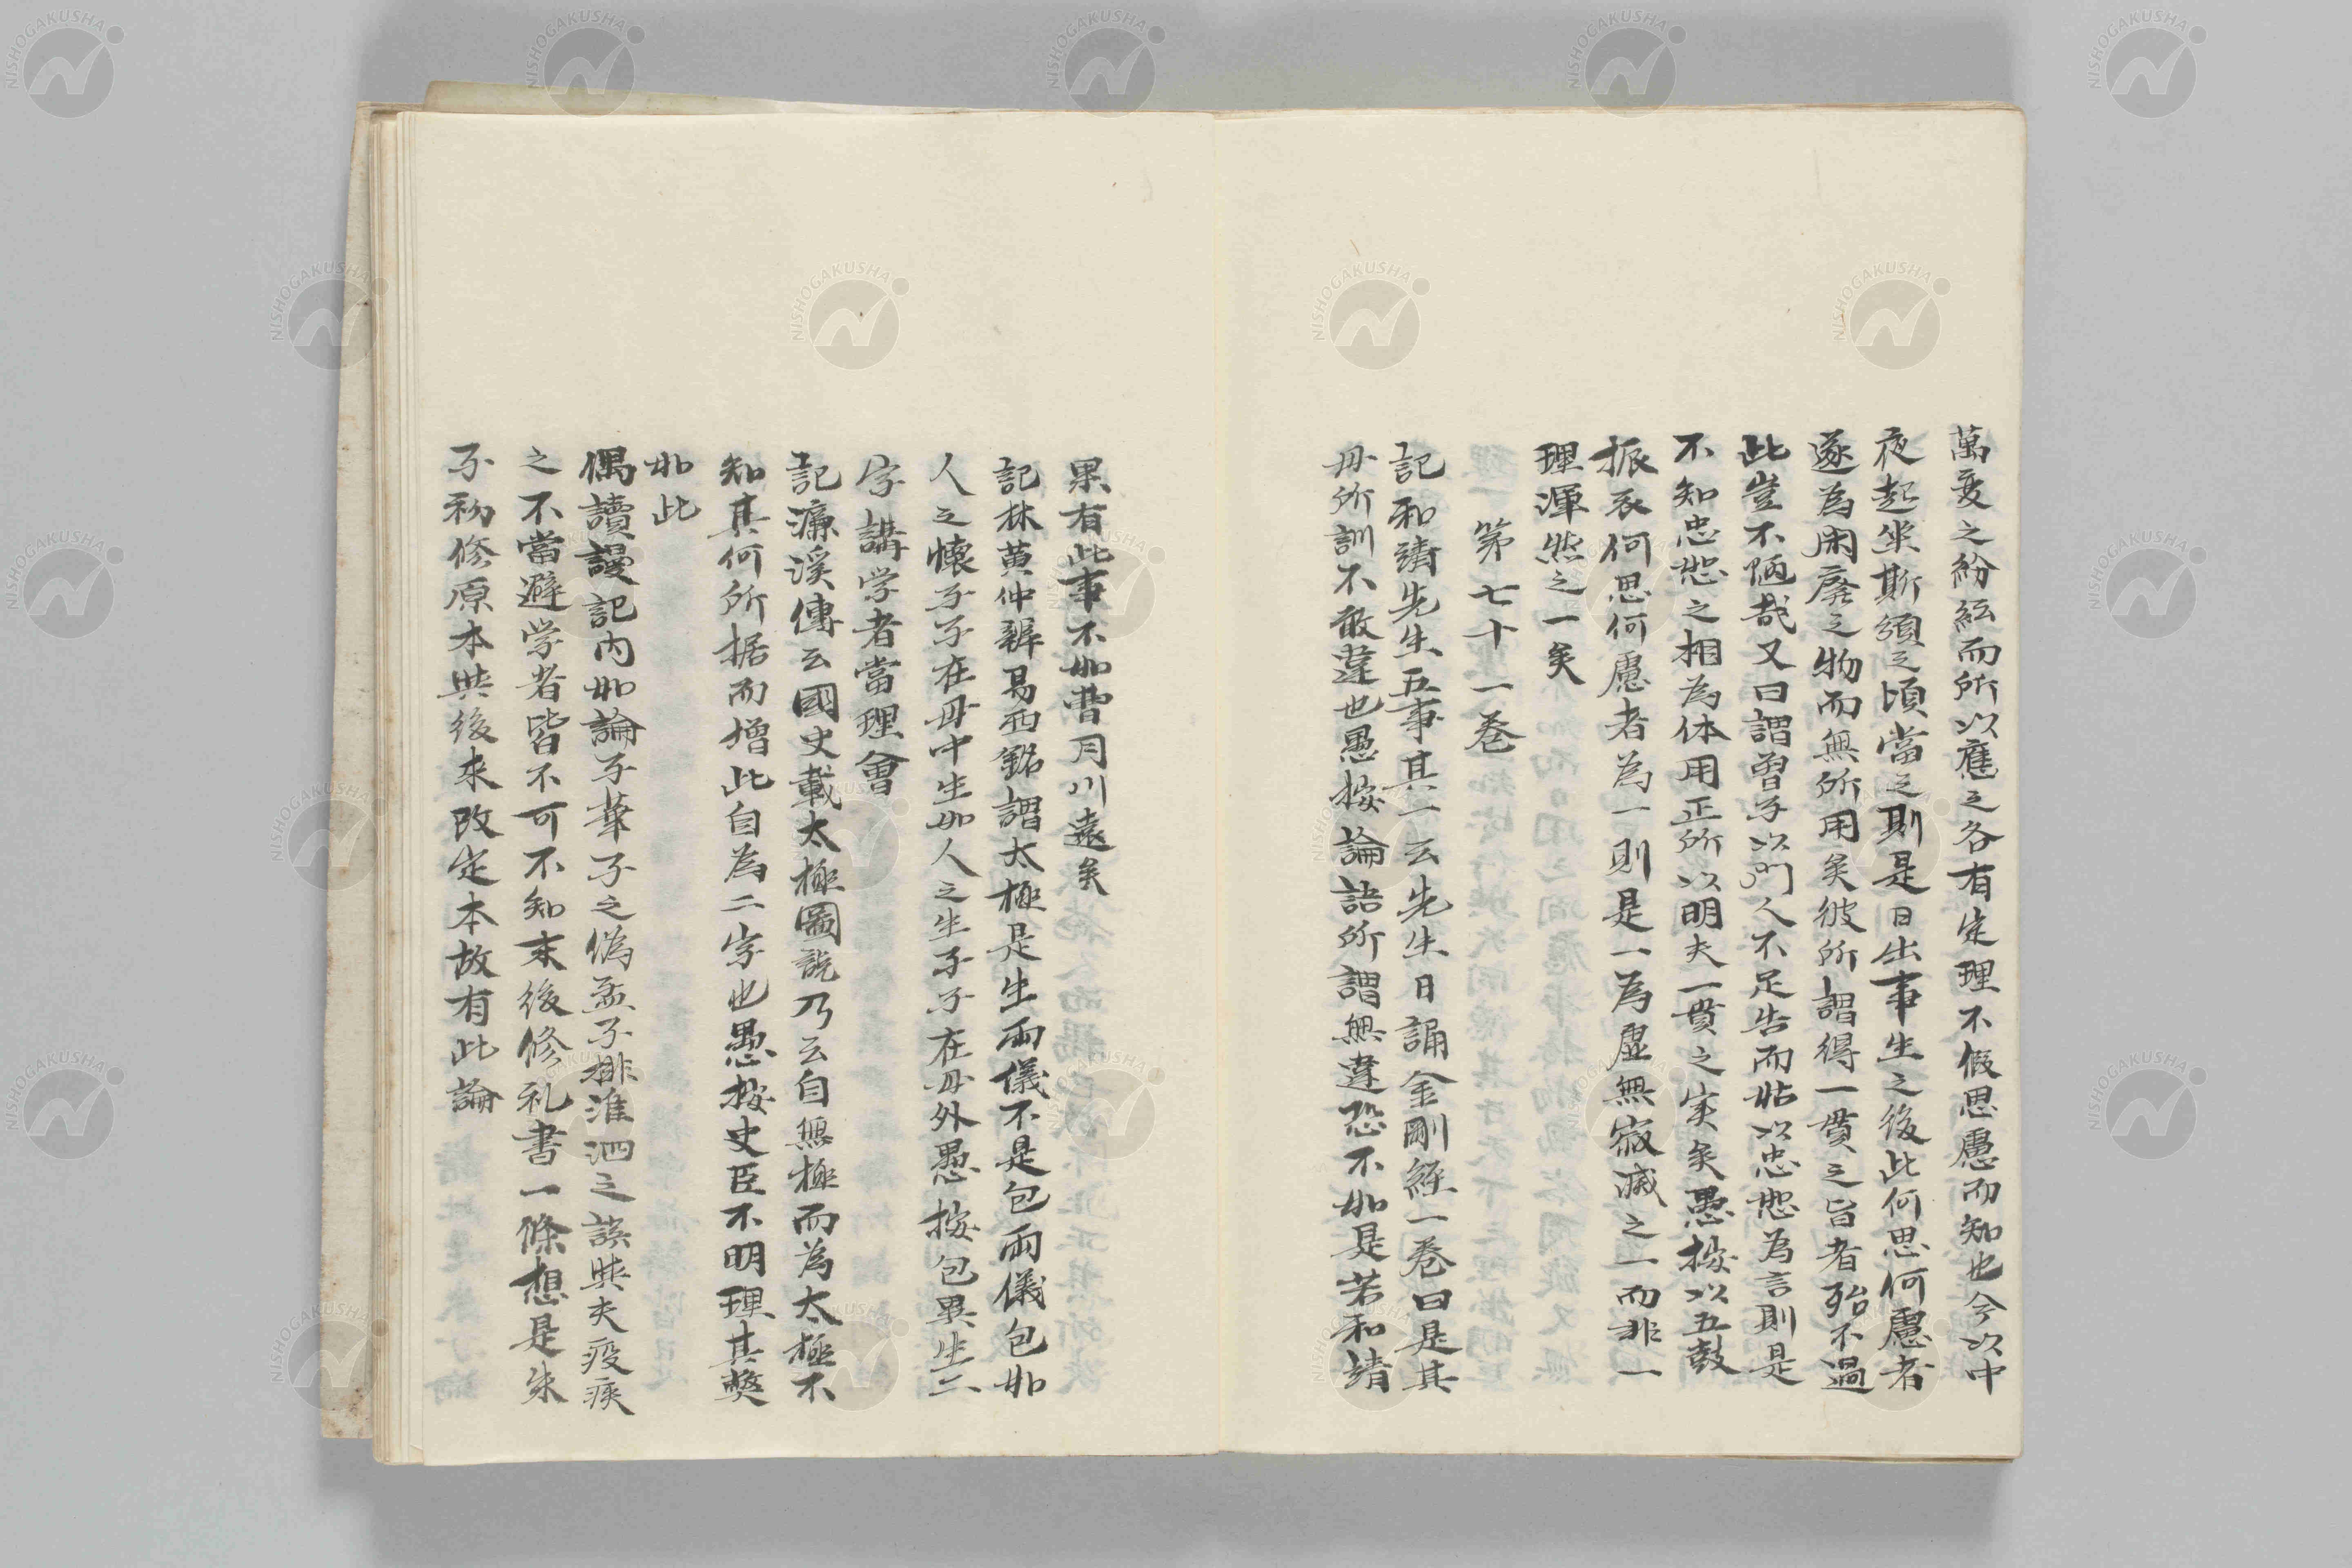 萬変之紛紜而所以應之各有定理不假思慮而知也今以中
夜起坐斯須之頃當之則是日出事生之後此何思何慮者
遂為閑廃之物而無所用矣彼所謂得一貫之旨者殆不過
此豈不陋哉又曰謂曽子以門人不足告而姑以忠恕為言則是
不知忠恕之相為体用正所以明夫一貫之実矣愚按以五鼓
振衣何思何慮者為一則是一為虚無寂滅之一而非一
理渾然之一矣
第七十一巻
記和靖先生五事其一云先生日誦金剛経一巻曰是其
母所訓不敢違也愚按論語所謂無違恐不如是若和靖
果有此事不如曹月川遠矣
記林黄仲辨易西銘謂太極是生兩儀不是包兩儀包如
人之懐子子在母中生如人之生子子在母外愚按包異生二
字講学者當理會
記濂溪傳云國史載太極圖説乃云自無極而為太極不
知其何所据而増此自為二字也愚按史臣不明理其獘
如此
偶讀謾記内如論子華子之偽孟子排淮泗之誤與夫疫疾
之不當避学者皆不可不知末後修礼書一條想是朱
子初修原本與後来改定本故有此論
NISHOGAKUSHA